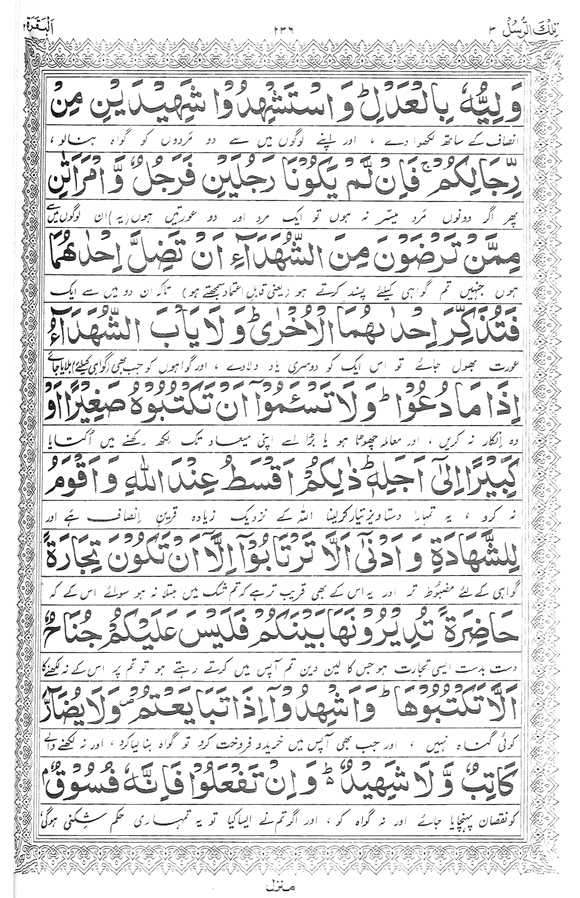 تِلْكَ الرُّسُلُ ٣
٢٣٦
اَلْبَقَرَة ٢
وَلِيُّهٗ بِالْعَدْلِ ؕ وَاسْتَشْهِدُوْا شَهِيْدَيْنِ مِنْ
انصاف کے ساتھ لکھوا دے ، اور اپنے لوگوں میں سے دو مردوں کو گواہ بنا لو ،
رِّجَالِكُمْ ۚ فَاِنْ لَّمْ يَكُوْنَا رَجُلَيْنِ فَرَجُلٌ وَّامْرَاَتٰنِ
پھر اگر دونوں مرد میسر نہ ہوں تو ایک مرد اور دو عورتیں ہوں (یہ) ان لوگوں میں سے
مِمَّنْ تَرْضَوْنَ مِنَ الشُّهَدَآءِ اَنْ تَضِلَّ اِحْدٰىهُمَا
ہوں جنہیں تم گواہی کیلئے پسند کرتے ہو (یعنی قابلِ اعتماد سمجھتے ہو) تاکہ ان دو میں سے ایک
فَتُذَكِّرَ اِحْدٰىهُمَا الْاُخْرٰى ؕ وَلَا يَاْبَ الشُّهَدَآءُ
عورت بھول جائے تو اس ایک کو دوسری یاد دلا دے ، اور گواہوں کو جب بھی (گواہی کیلئے) بلایا جائے
اِذَا مَا دُعُوْا ؕ وَلَا تَسْـَٔمُوْۤا اَنْ تَكْتُبُوْهُ صَغِيْرًا اَوْ
وہ انکار نہ کریں ، اور معاملہ چھوٹا ہو یا بڑا اسے اپنی میعاد تک لکھ رکھنے میں اُکتایا
كَبِيْرًا اِلٰۤى اَجَلِهٖ ؕ ذٰلِكُمْ اَقْسَطُ عِنْدَ اللّٰهِ وَاَقْوَمُ
نہ کرو ، یہ تمہارا دستاویز تیار کر لینا اللہ کے نزدیک زیادہ قرینِ انصاف ہے اور
لِلشَّهَادَةِ وَاَدْنٰۤى اَلَّا تَرْتَابُوْۤا اِلَّاۤ اَنْ تَكُوْنَ تِجَارَةً
گواہی کے لئے مضبوط تر اور یہ اس کے بھی قریب تر ہے کہ تم شک میں مبتلا نہ ہو سوائے اس کے کہ
حَاضِرَةً تُدِيْرُوْنَهَا بَيْنَكُمْ فَلَيْسَ عَلَيْكُمْ جُنَاحٌ
دست بدست ایسی تجارت ہو جس کا لین دین تم آپس میں کرتے رہتے ہو تو تم پر اس کے نہ لکھنے کا
اَلَّا تَكْتُبُوْهَا ؕ وَاَشْهِدُوْۤا اِذَا تَبَايَعْتُمْ ۪ وَلَا يُضَآرَّ
کوئی گناہ نہیں ، اور جب بھی آپس میں خرید و فروخت کرو تو گواہ بنا لیا کرو ، اور نہ لکھنے والے
كَاتِبٌ وَّلَا شَهِيْدٌ ؕ۬ وَاِنْ تَفْعَلُوْا فَاِنَّهٗ فُسُوْقٌۢ
کو نقصان پہنچایا جائے اور نہ گواہ کو ، اور اگر تم نے ایسا کیا تو یہ تمہاری حکم شکنی ہوگی
منزل